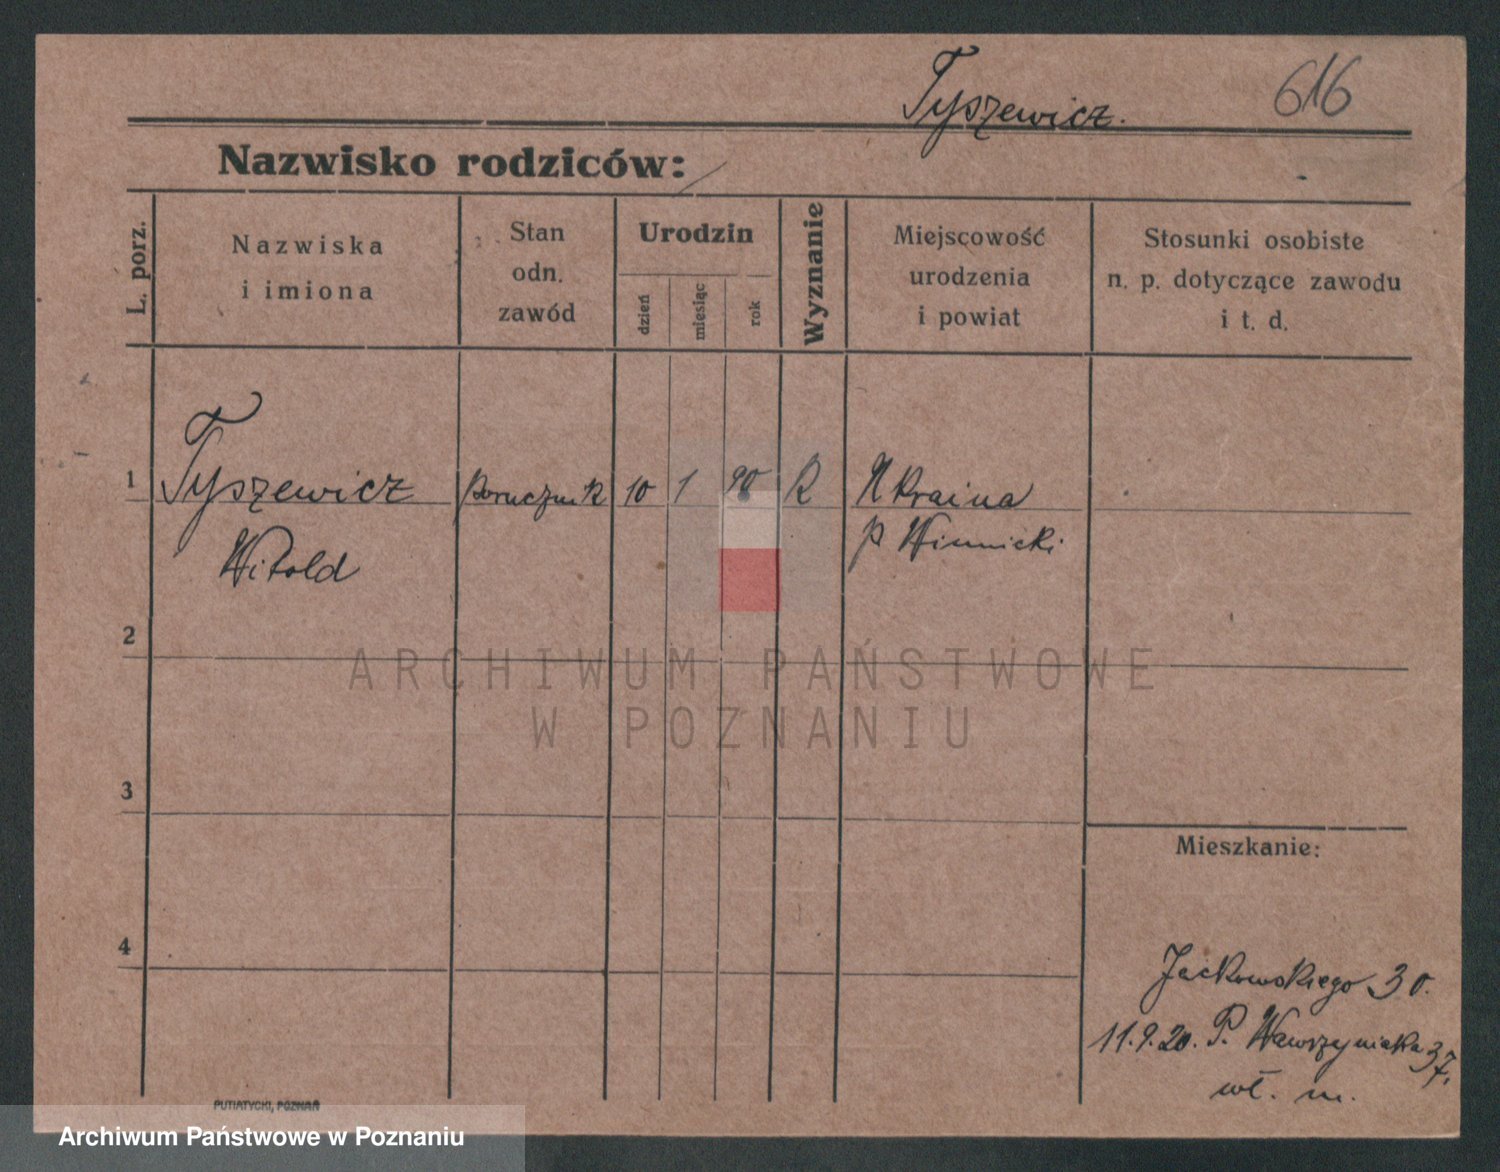 Tyszewicz.
616
Nazwisko rodziców:
L. porz.
Nazwiska
i imiona
Stan
odn.
zawód
Urodzin
dzień
miesiąc
rok
Wyznanie
Miejscowość
urodzenia
i powiat
Stosunki osobiste
n. p. dotyczące zawodu
i t. d.
1
Tyszewicz
porucznik
10
1
90
R
Ukraina
Witold
p Winnicki
2
ARCHIWUM PAŃSTWOWE
W POZNANIU
3
Mieszkanie:
4
Jackowskiego 30.
11.9.20. P. Wawrzyniaka 37,
wł. m.
PUTIATYCKI, POZNAŃ
Archiwum Państwowe w Poznaniu